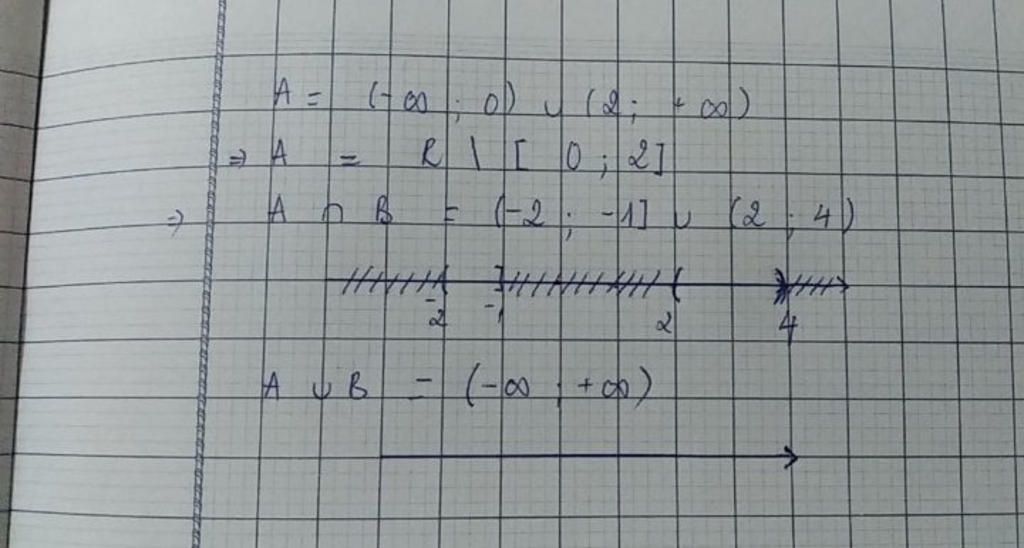 A = (-∞ ; 0) ∪ (2 ; +∞)
⇒ A = R \ [ 0 ; 2]
⇒ A ∩ B = (-2 ; -1] ∪ (2 ; 4)
-2 -1 2 4
A ∪ B = (-∞ ; +∞)